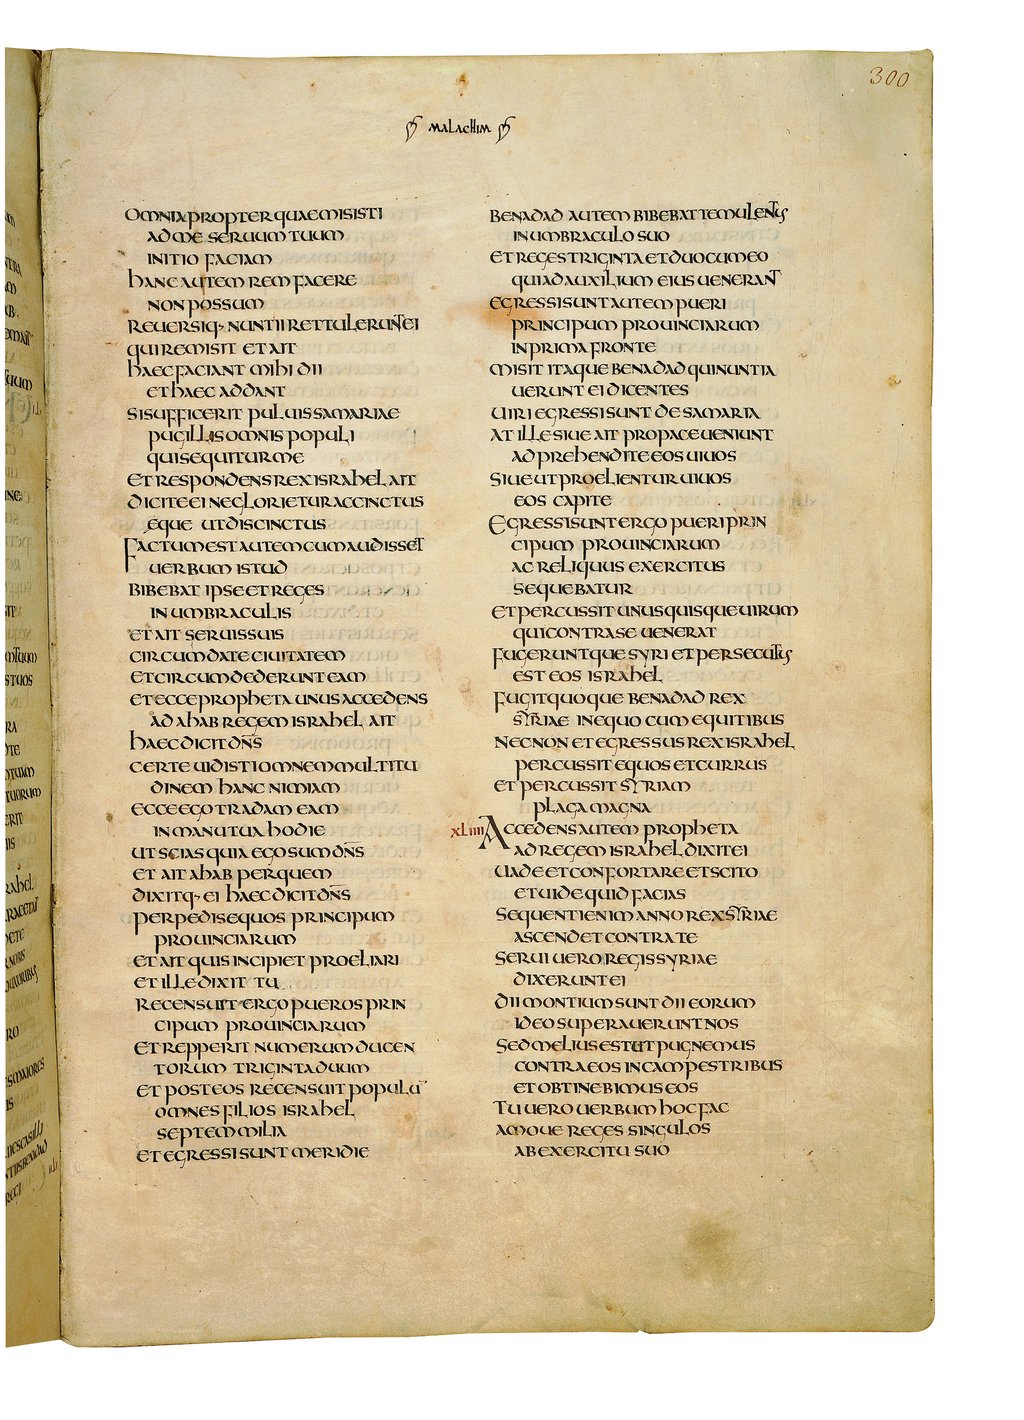 300
MALACHIM
OMNIA PROPTER QUAE MISISTI
AD ME SERUUM TUUM
INITIO FACIAM
HANC AUTEM REM FACERE
NON POSSUM
REUERSIQ· NUNTII RETTULERUNT EI
QUI REMISIT ET AIT
HAEC FACIANT MIHI DII
ET HAEC ADDANT
SI SUFFICERIT PULUIS SAMARIAE
PUGILLIS OMNIS POPULI
QUI SEQUITUR ME
ET RESPONDENS REX ISRAHEL AIT
DICITE EI NE GLORIETUR ACCINCTUS
EQUE UT DISCINCTUS
FACTUM EST AUTEM CUM AUDISSET
UERBUM ISTUD
BIBEBAT IPSE ET REGES
IN UMBRACULIS
ET AIT SERUIS SUIS
CIRCUMDATE CIUITATEM
ET CIRCUMDEDERUNT EAM
ET ECCE PROPHETA UNUS ACCEDENS
AD AHAB REGEM ISRAHEL AIT
HAEC DICIT DN̅S
CERTE UIDISTI OMNEM MULTITU
DINEM HANC NIMIAM
ECCE EGO TRADAM EAM
IN MANU TUA HODIE
UT SCIAS QUIA EGO SUM DN̅S
ET AIT AHAB PER QUEM
DIXITQ· EI HAEC DICIT DN̅S
PER PEDISEQUOS PRINCIPUM
PROUINCIARUM
ET AIT QUIS INCIPIET PROELIARI
ET ILLE DIXIT TU
RECENSUIT ERGO PUEROS PRIN
CIPUM PROUINCIARUM
ET REPPERIT NUMERUM DUCEN
TORUM TRIGINTA DUUM
ET POST EOS RECENSUIT POPULU̅
OMNES FILIOS ISRAHEL
SEPTEM MILIA
ET EGRESSI SUNT MERIDIE
BENADAD AUTEM BIBEBAT TEMULENTUS
IN UMBRACULO SUO
ET REGES TRIGINTA ET DUO CUM EO
QUI AD AUXILIUM EIUS UENERANT
EGRESSI SUNT AUTEM PUERI
PRINCIPUM PROUINCIARUM
IN PRIMA FRONTE
MISIT ITAQUE BENADAD QUI NUNTIA
UERUNT EI DICENTES
UIRI EGRESSI SUNT DE SAMARIA
AT ILLE SIUE AIT PRO PACE UENIUNT
ADPREHENDITE EOS UIUOS
SIUE UT PROELIENTUR UIUOS
EOS CAPITE
EGRESSI SUNT ERGO PUERI PRIN
CIPUM PROUINCIARUM
AC RELIQUUS EXERCITUS
SEQUEBATUR
ET PERCUSSIT UNUSQUISQUE UIRUM
QUI CONTRA SE UENERAT
FUGERUNTQUE SYRI ET PERSECUTUS
EST EOS ISRAHEL
FUGIT QUOQUE BENADAD REX
SYRIAE IN EQUO CUM EQUITIBUS
NEC NON ET EGRESSUS REX ISRAHEL
PERCUSSIT EQUOS ET CURRUS
ET PERCUSSIT SYRIAM
PLAGA MAGNA
XLIIII ACCEDENS AUTEM PROPHETA
AD REGEM ISRAHEL DIXIT EI
UADE ET CONFORTARE ET SCITO
ET UIDE QUID FACIAS
SEQUENTI ENIM ANNO REX SYRIAE
ASCENDET CONTRA TE
SERUI UERO REGIS SYRIAE
DIXERUNT EI
DII MONTIUM SUNT DII EORUM
IDEO SUPERAUERUNT NOS
SED MELIUS EST UT PUGNEMUS
CONTRA EOS IN CAMPESTRIBUS
ET OBTINEBIMUS EOS
TU UERO UERBUM HOC FAC
AMOUE REGES SINGULOS
AB EXERCITU SUO